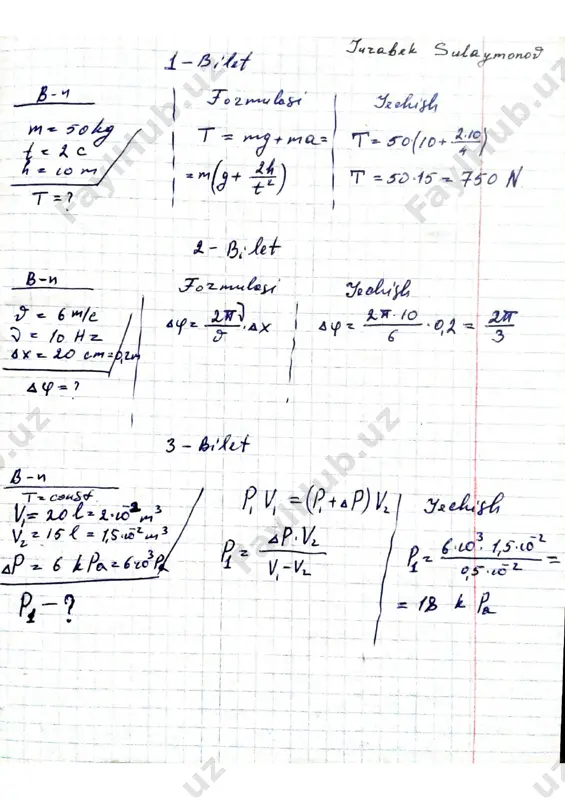 Jurabek Sulaymonov
1-Bilet
B-n
m = 50 kg
t = 2 c
h = 10 m
T = ?
Formulasi
T = mg + ma =
= m(g + 2h/t²)
Yechish
T = 50(10 + 2·10/4)
T = 50·15 = 750 N
2-Bilet
B-n
ϑ = 6 m/c
ν = 10 Hz
Δx = 20 cm = 0,2m
Δφ = ?
Formulasi
Δφ = 2πν/ϑ · Δx
Yechish
Δφ = 2π·10/6 · 0,2 = 2π/3
3-Bilet
B-n
T = const
V₁ = 20 l = 2·10⁻² m³
V₂ = 15 l = 1,5·10⁻² m³
ΔP = 6 kPa = 6·10³ Pa
P₁ - ?
P₁V₁ = (P₁ + ΔP)V₂
P₁ = ΔP·V₂/V₁-V₂
Yechish
P₁ = 6·10³·1,5·10⁻²/0,5·10⁻² =
= 18 k Pa
FaylHub.uz
FaylHub.uz
FaylHub.uz
uz
uz
uz
uz